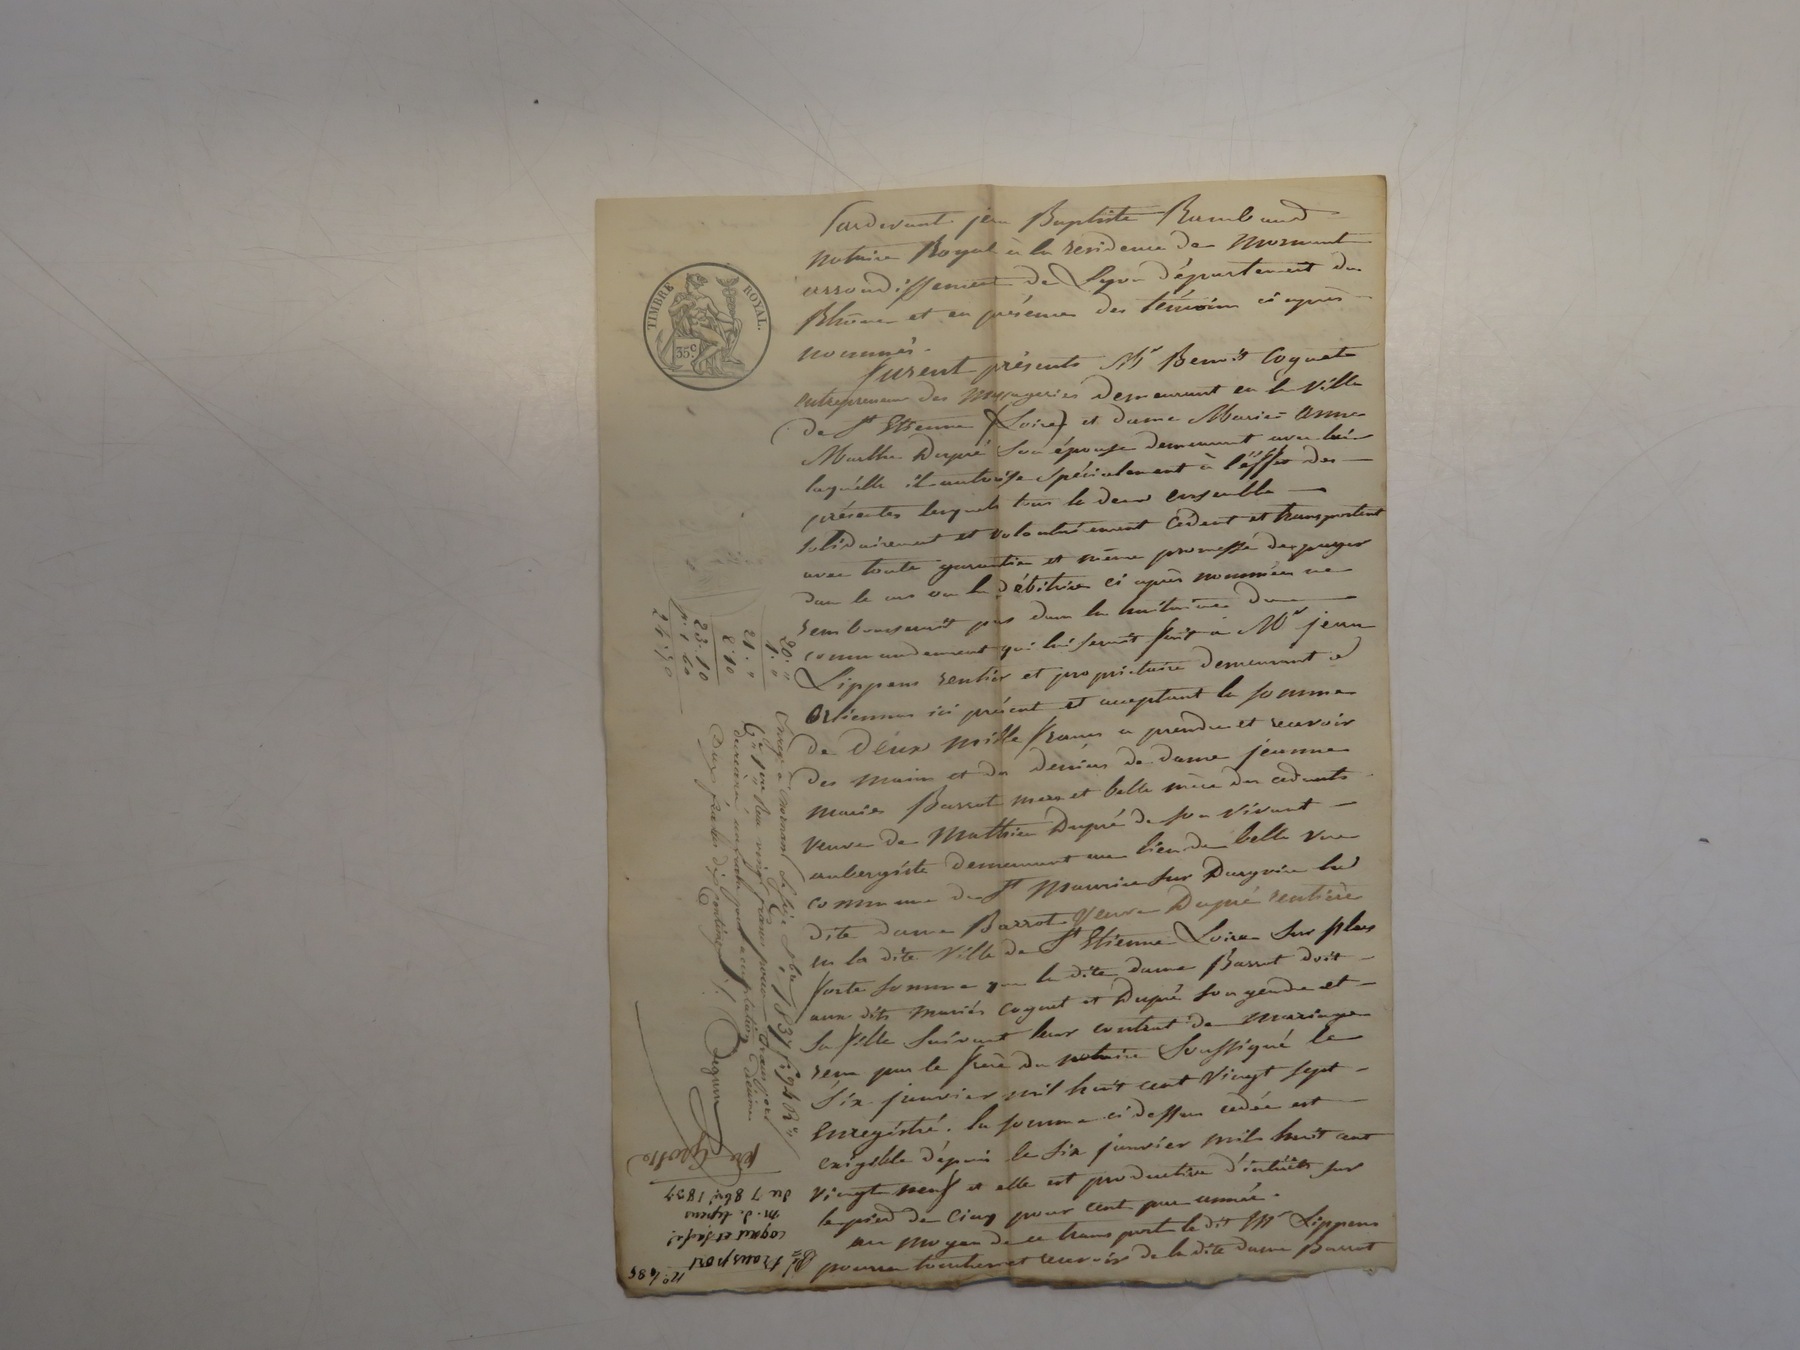 TIMBRE ROYAL.
35c.
Pardevant jean Baptiste Rambaud
notaire Royal à la residence de Mornant
arrondissement de Lyon département du
Rhône et en présence des témoins ci après
nommés.
furent présents Mr Benoit Coquet
entrepreneur des Messageries demeurant en la Ville
de St Etienne (Loire) et dame Marie = Anne
Marthe Dupré son épouse demeurant avec lui
laquélle il autorise spécialement à l'éffet des
présentes lesquels tous le deux ensemble
solidairement et volontairement Cedent et transportent
avec toute garantie et même promesse de payer
dans le cas ou la débitrice ci après nommée ne
rembourserait pas dans la huitaine du
commandement qui lui serait fait à Mr jean
Lippens rentier et propriétaire demeurant à
Orlienas ici présent et acceptant la somme
de déux Mille francs a prendre et recevoir
des mains et des deniers de dame jeanne
marie Barrot mere et belle mère des cedants
veuve de Mathieu Dupré de son vivant
aubergiste demeurant au lieu de belle vue
commune de St Maurice sur Dargoire la
dite dame Barrot Veuve Dupré rentière
en la dite Ville de St Etienne Loire sur plus
forte somme que la dite dame Barrot doit
aux dits mariés Coquet et Dupré son gendre et
sa fille suivant leur contrat de Mariage
reçu par le frère du notaire Soussigné le
Six janvier mil huit cent Vingt sept
Enregistré. la somme ci dessus cedée est
exigible dépuis le six janvier mil huit cent
Vingt neuf et elle est productive d'intérêts sur
le pied de Cinq pour cent par année.
au moyen de ce transport le dit Mr Lippens
pourra toucher et recevoir de la dite dame Barrot
20. "
1. "
21. "
2. 10
23. 10
1. 60
Enregé à Mornant le
1837 fo 94 Ro
vingt francs pour transport
deux francs dix centimes
No 485
transport
Coquet et
M. J. Lipens
du 7 8bre 1837